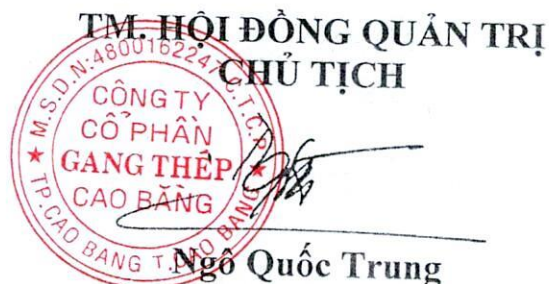 TM. HỘI ĐỒNG QUẢN TRỊ
CHỦ TỊCH
M.S.D.N:4800162247-C.T.C.P
CÔNG TY
CỔ PHẦN
GANG THÉP
CAO BẰNG
TP.CAO BANG T.CAO BANG
Ngô Quốc Trung